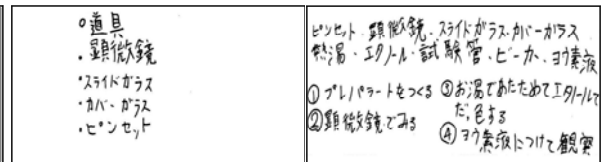 ○道具
・顕微鏡
・スライドガラス
・カバーガラス
・ピンセット
ピンセット 顕微鏡・スライドガラス・カバーガラス
熱湯・エタノール・試験管・ビーカ・ヨウ素液
①プレパラートをつくる
②顕微鏡でみる
③お湯であたためてエタノールで
だっ色する
④ヨウ素液につけて観察